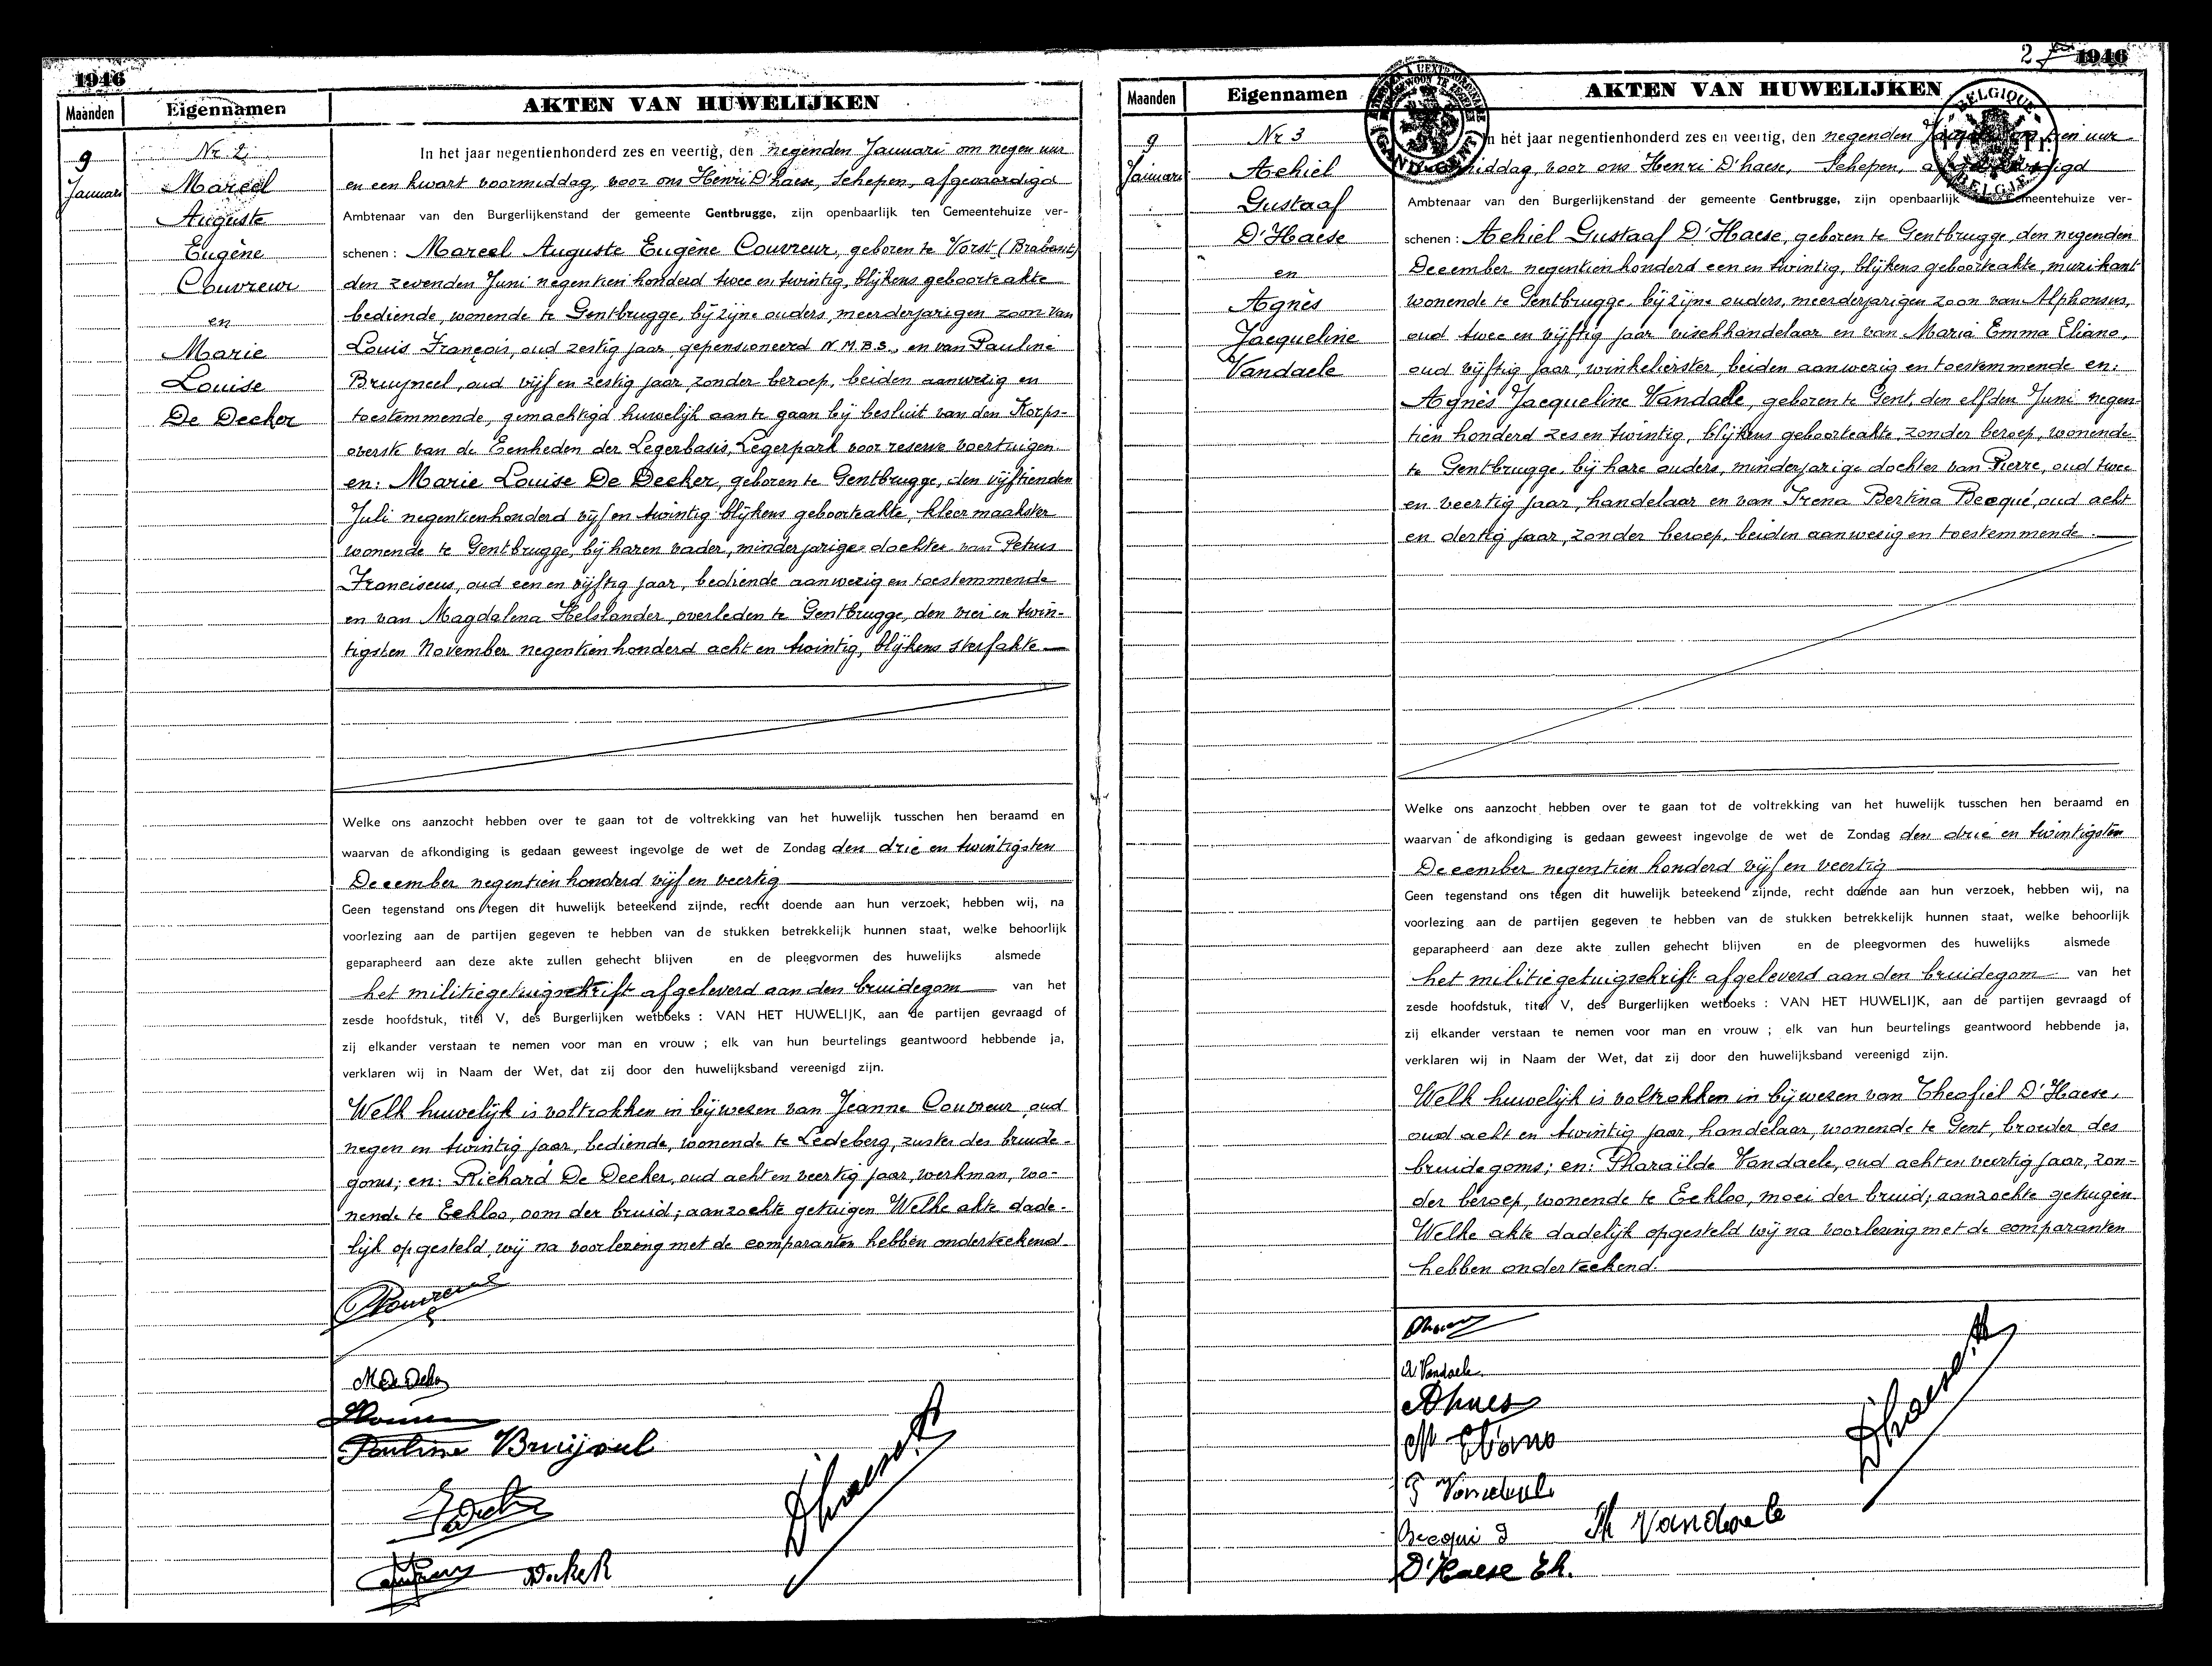 1946
Maanden
Eigennamen
AKTEN VAN HUWELIJKEN
9
Januari
Nr 2
Marcel
Auguste
Eugène
Couvreur
en
Marie
Louise
De Decker
In het jaar negentienhonderd zes en veertig, den negenden Januari om negen uur
en een kwart voormiddag, voor ons Henri D'haese, Schepen, afgevaardigd
Ambtenaar van den Burgerlijkenstand der gemeente Gentbrugge, zijn openbaarlijk ten Gemeentehuize ver-
schenen: Marcel Auguste Eugène Couvreur, geboren te Vorst (Brabant)
den zevenden Juni negentien honderd twee en twintig, blijkens geboorteakte
bediende, wonende te Gentbrugge, bij zijne ouders, meerderjarigen zoon van
Louis François, oud zestig jaar, gepensioneerd N.M.B.S., en van Pauline
Bruyneel, oud vijf en zestig jaar, zonder beroep, beiden aanwezig en
toestemmende, gemachtigd huwelijk aan te gaan bij besluit van den Korps-
overste van de Eenheden der Legerbasis, Legerpark voor reserve voertuigen.
en: Marie Louise De Decker, geboren te Gentbrugge, den vijftienden
Juli negentienhonderd vijf en twintig blijkens geboorteakte, kleermaakster
wonende te Gentbrugge, bij haren vader, minderjarige dochter van Petrus
Franciscus, oud een en vijftig jaar, bediende aanwezig en toestemmende
en van Magdalena Helslander, overleden te Gentbrugge, den vier en twin-
tigsten November negentien honderd acht en twintig, blijkens sterfakte
Welke ons aanzocht hebben over te gaan tot de voltrekking van het huwelijk tusschen hen beraamd en
waarvan de afkondiging is gedaan geweest ingevolge de wet de Zondag den drie en twintigsten
December negentien honderd vijf en veertig
Geen tegenstand ons tegen dit huwelijk beteekend zijnde, recht doende aan hun verzoek, hebben wij, na
voorlezing aan de partijen gegeven te hebben van de stukken betrekkelijk hunnen staat, welke behoorlijk
geparapheerd aan deze akte zullen gehecht blijven en de pleegvormen des huwelijks alsmede
het militiegetuigschrift afgeleverd aan den bruidegom van het
zesde hoofdstuk, titel V, des Burgerlijken wetboeks : VAN HET HUWELIJK, aan de partijen gevraagd of
zij elkander verstaan te nemen voor man en vrouw ; elk van hun beurtelings geantwoord hebbende ja,
verklaren wij in Naam der Wet, dat zij door den huwelijksband vereenigd zijn.
Welk huwelijk is voltrokken in bijwezen van Jeanne Couvreur, oud
negen en twintig jaar, bediende, wonende te Ledeberg, zuster des bruide-
goms; en: Richard De Decker, oud acht en veertig jaar, werkman, wo-
nende te Eekloo, oom der bruid; aanzochte getuigen Welke akte dade-
lijk opgesteld wij na voorlezing met de comparanten hebben onderteekend
Pauline Bruyneel
27 1946
Maanden
Eigennamen
AKTEN VAN HUWELIJKEN
GAND GENT
BELGIQUE
BELGIE
9
Januari
Nr 3
Achiel
Gustaaf
D'Haese
en
Agnès
Jacqueline
Vandaele
In het jaar negentienhonderd zes en veertig, den negenden tien uur
middag, voor ons Henri D'haese, Schepen,
Ambtenaar van den Burgerlijkenstand der gemeente Gentbrugge, zijn openbaarlijk Gemeentehuize ver-
schenen: Achiel Gustaaf D'Haese, geboren te Gentbrugge, den negenden
December negentien honderd een en twintig, blijkens geboorteakte, muzikant
wonende te Gentbrugge bij zijne ouders, meerderjarigen zoon van Alphonsus,
oud twee en vijftig jaar vischhandelaar en van Maria Emma Eliano,
oud vijftig jaar, winkelierster, beiden aanwezig en toestemmende en:
Agnès Jacqueline Vandaele, geboren te Gent, den elfden Juni negen-
tien honderd zes en twintig, blijkens geboorteakte, zonder beroep, wonende
te Gentbrugge, bij hare ouders, minderjarige dochter van Pierre, oud twee
en veertig jaar, handelaar en van Irena Bertina Becqué, oud acht
en dertig jaar, zonder beroep, beiden aanwezig en toestemmende.
Welke ons aanzocht hebben over te gaan tot de voltrekking van het huwelijk tusschen hen beraamd en
waarvan de afkondiging is gedaan geweest ingevolge de wet de Zondag den drie en twintigsten
December negentien honderd vijf en veertig
Geen tegenstand ons tegen dit huwelijk beteekend zijnde, recht doende aan hun verzoek, hebben wij, na
voorlezing aan de partijen gegeven te hebben van de stukken betrekkelijk hunnen staat, welke behoorlijk
geparapheerd aan deze akte zullen gehecht blijven en de pleegvormen des huwelijks alsmede
het militiegetuigschrift afgeleverd aan den bruidegom van het
zesde hoofdstuk, titel V, des Burgerlijken wetboeks : VAN HET HUWELIJK, aan de partijen gevraagd of
zij elkander verstaan te nemen voor man en vrouw ; elk van hun beurtelings geantwoord hebbende ja,
verklaren wij in Naam der Wet, dat zij door den huwelijksband vereenigd zijn.
Welk huwelijk is voltrokken in bijwezen van Theofiel D'Haese,
oud acht en twintig jaar, handelaar, wonende te Gent, broeder des
bruidegoms; en: Pharaïlde Vandaele, oud acht en veertig jaar, zon-
der beroep, wonende te Eekloo, moei der bruid; aanzochte getuigen
Welke akte dadelijk opgesteld wij na voorlezing met de comparanten
hebben onderteekend.
A Vandaele
M Eliano
Th Vandaele
D'Haese Th.